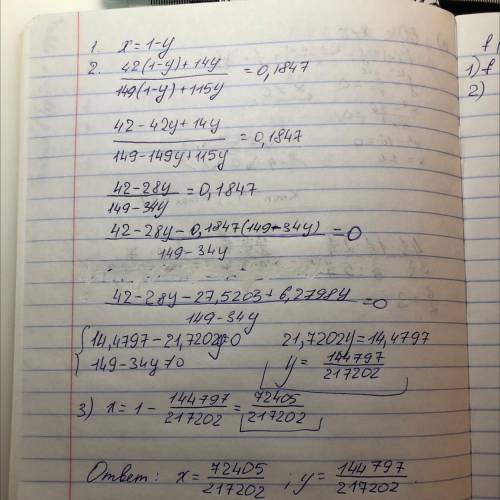 1. x = 1 - y
2. \frac{42(1-y)+14y}{149(1-y)+115y} = 0,1847
\frac{42-42y+14y}{149-149y+115y} = 0,1847
\frac{42-28y}{149-34y} = 0,1847
\frac{42-28y-0,1847(149-34y)}{149-34y} = 0
\frac{42-28y-27,5203+6,2798y}{149-34y} = 0
{ 14,4797-21,7202y=0 21,7202y=14,4797
149-34y≠0 y = \frac{144797}{217202}
3) x = 1 - \frac{144797}{217202} = \frac{72405}{217202}
Ответ: x = \frac{72405}{217202} ; y = \frac{144797}{217202}.
1) f
2)